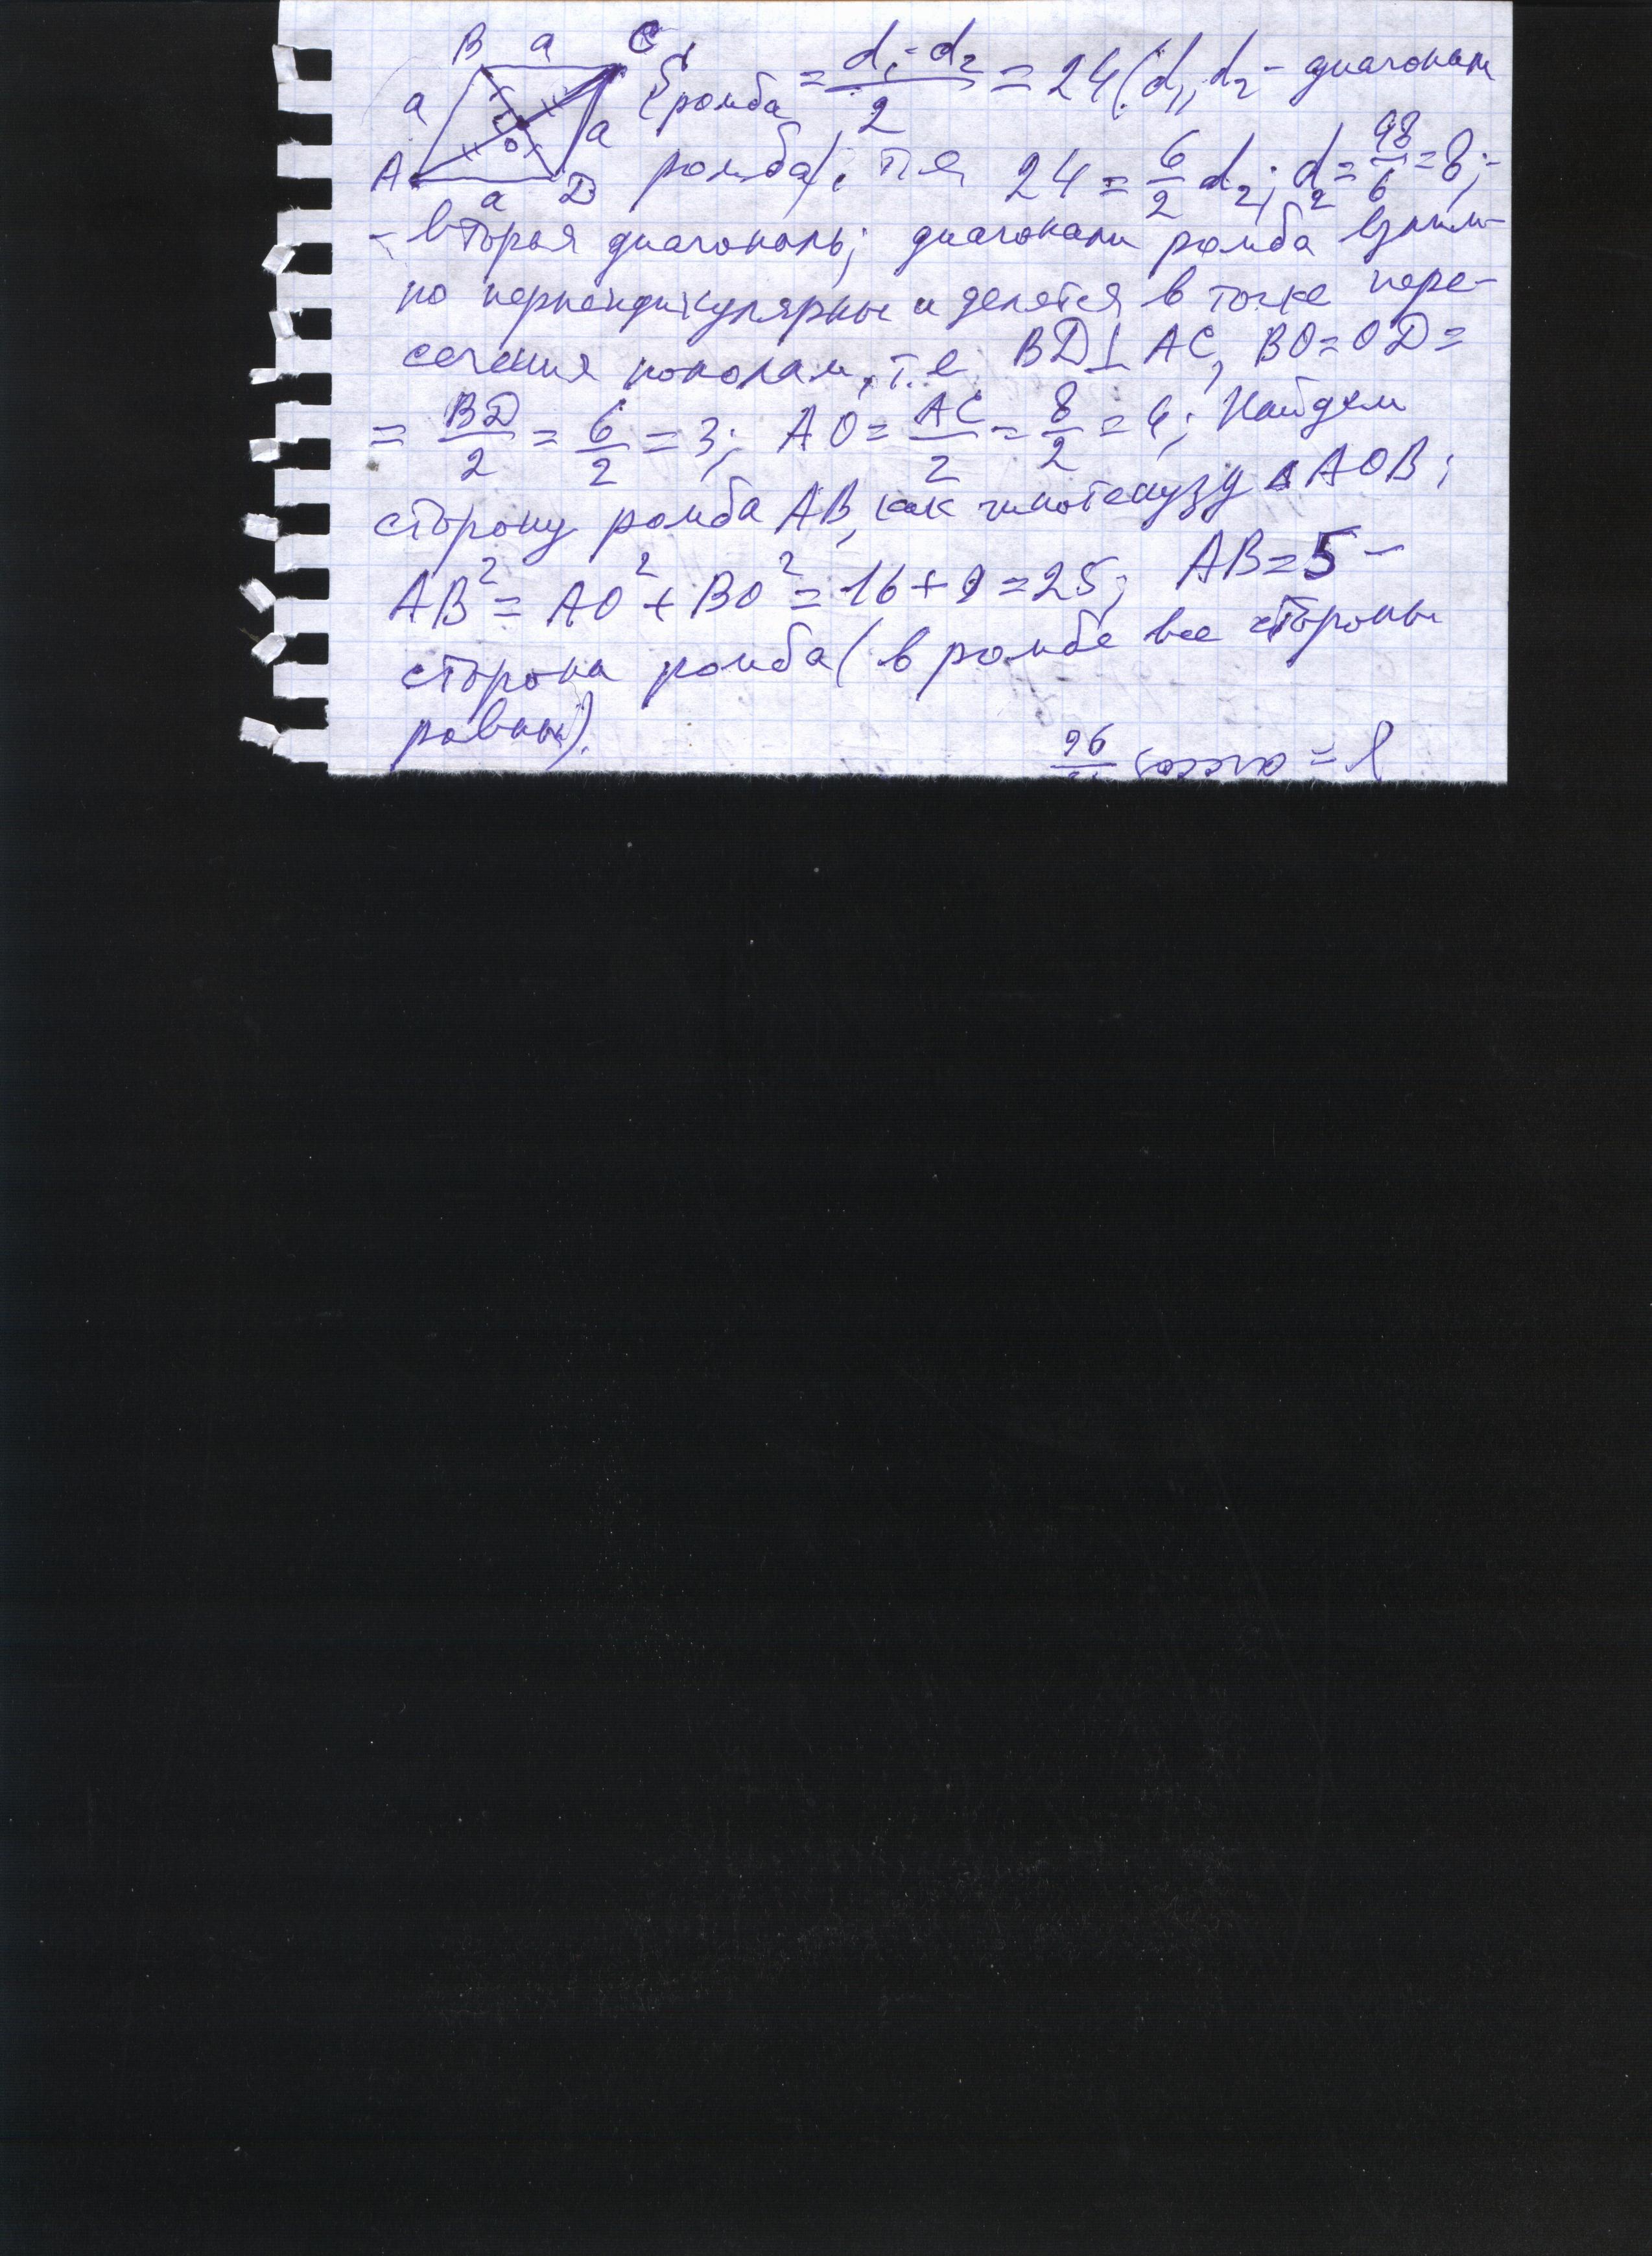 B a C
a a
A a D
O
S ромба = d₁·d₂/2 = 24 (d₁, d₂ - диагонали
ромба), т.е. 24 = 6/2 d₂; d₂ = 48/6 = 8; -
- вторая диагональ; диагонали ромба взаим-
но перпендикулярны и делятся в точке пере-
сечения пополам, т.е. BD ⊥ AC, BO = OD =
= BD/2 = 6/2 = 3; AO = AC/2 = 8/2 = 4; Найдем
сторону ромба AB, как гипотенузу △AOB;
AB² = AO² + BO² = 16 + 9 = 25; AB = 5 -
сторона ромба (в ромбе все стороны
равны).